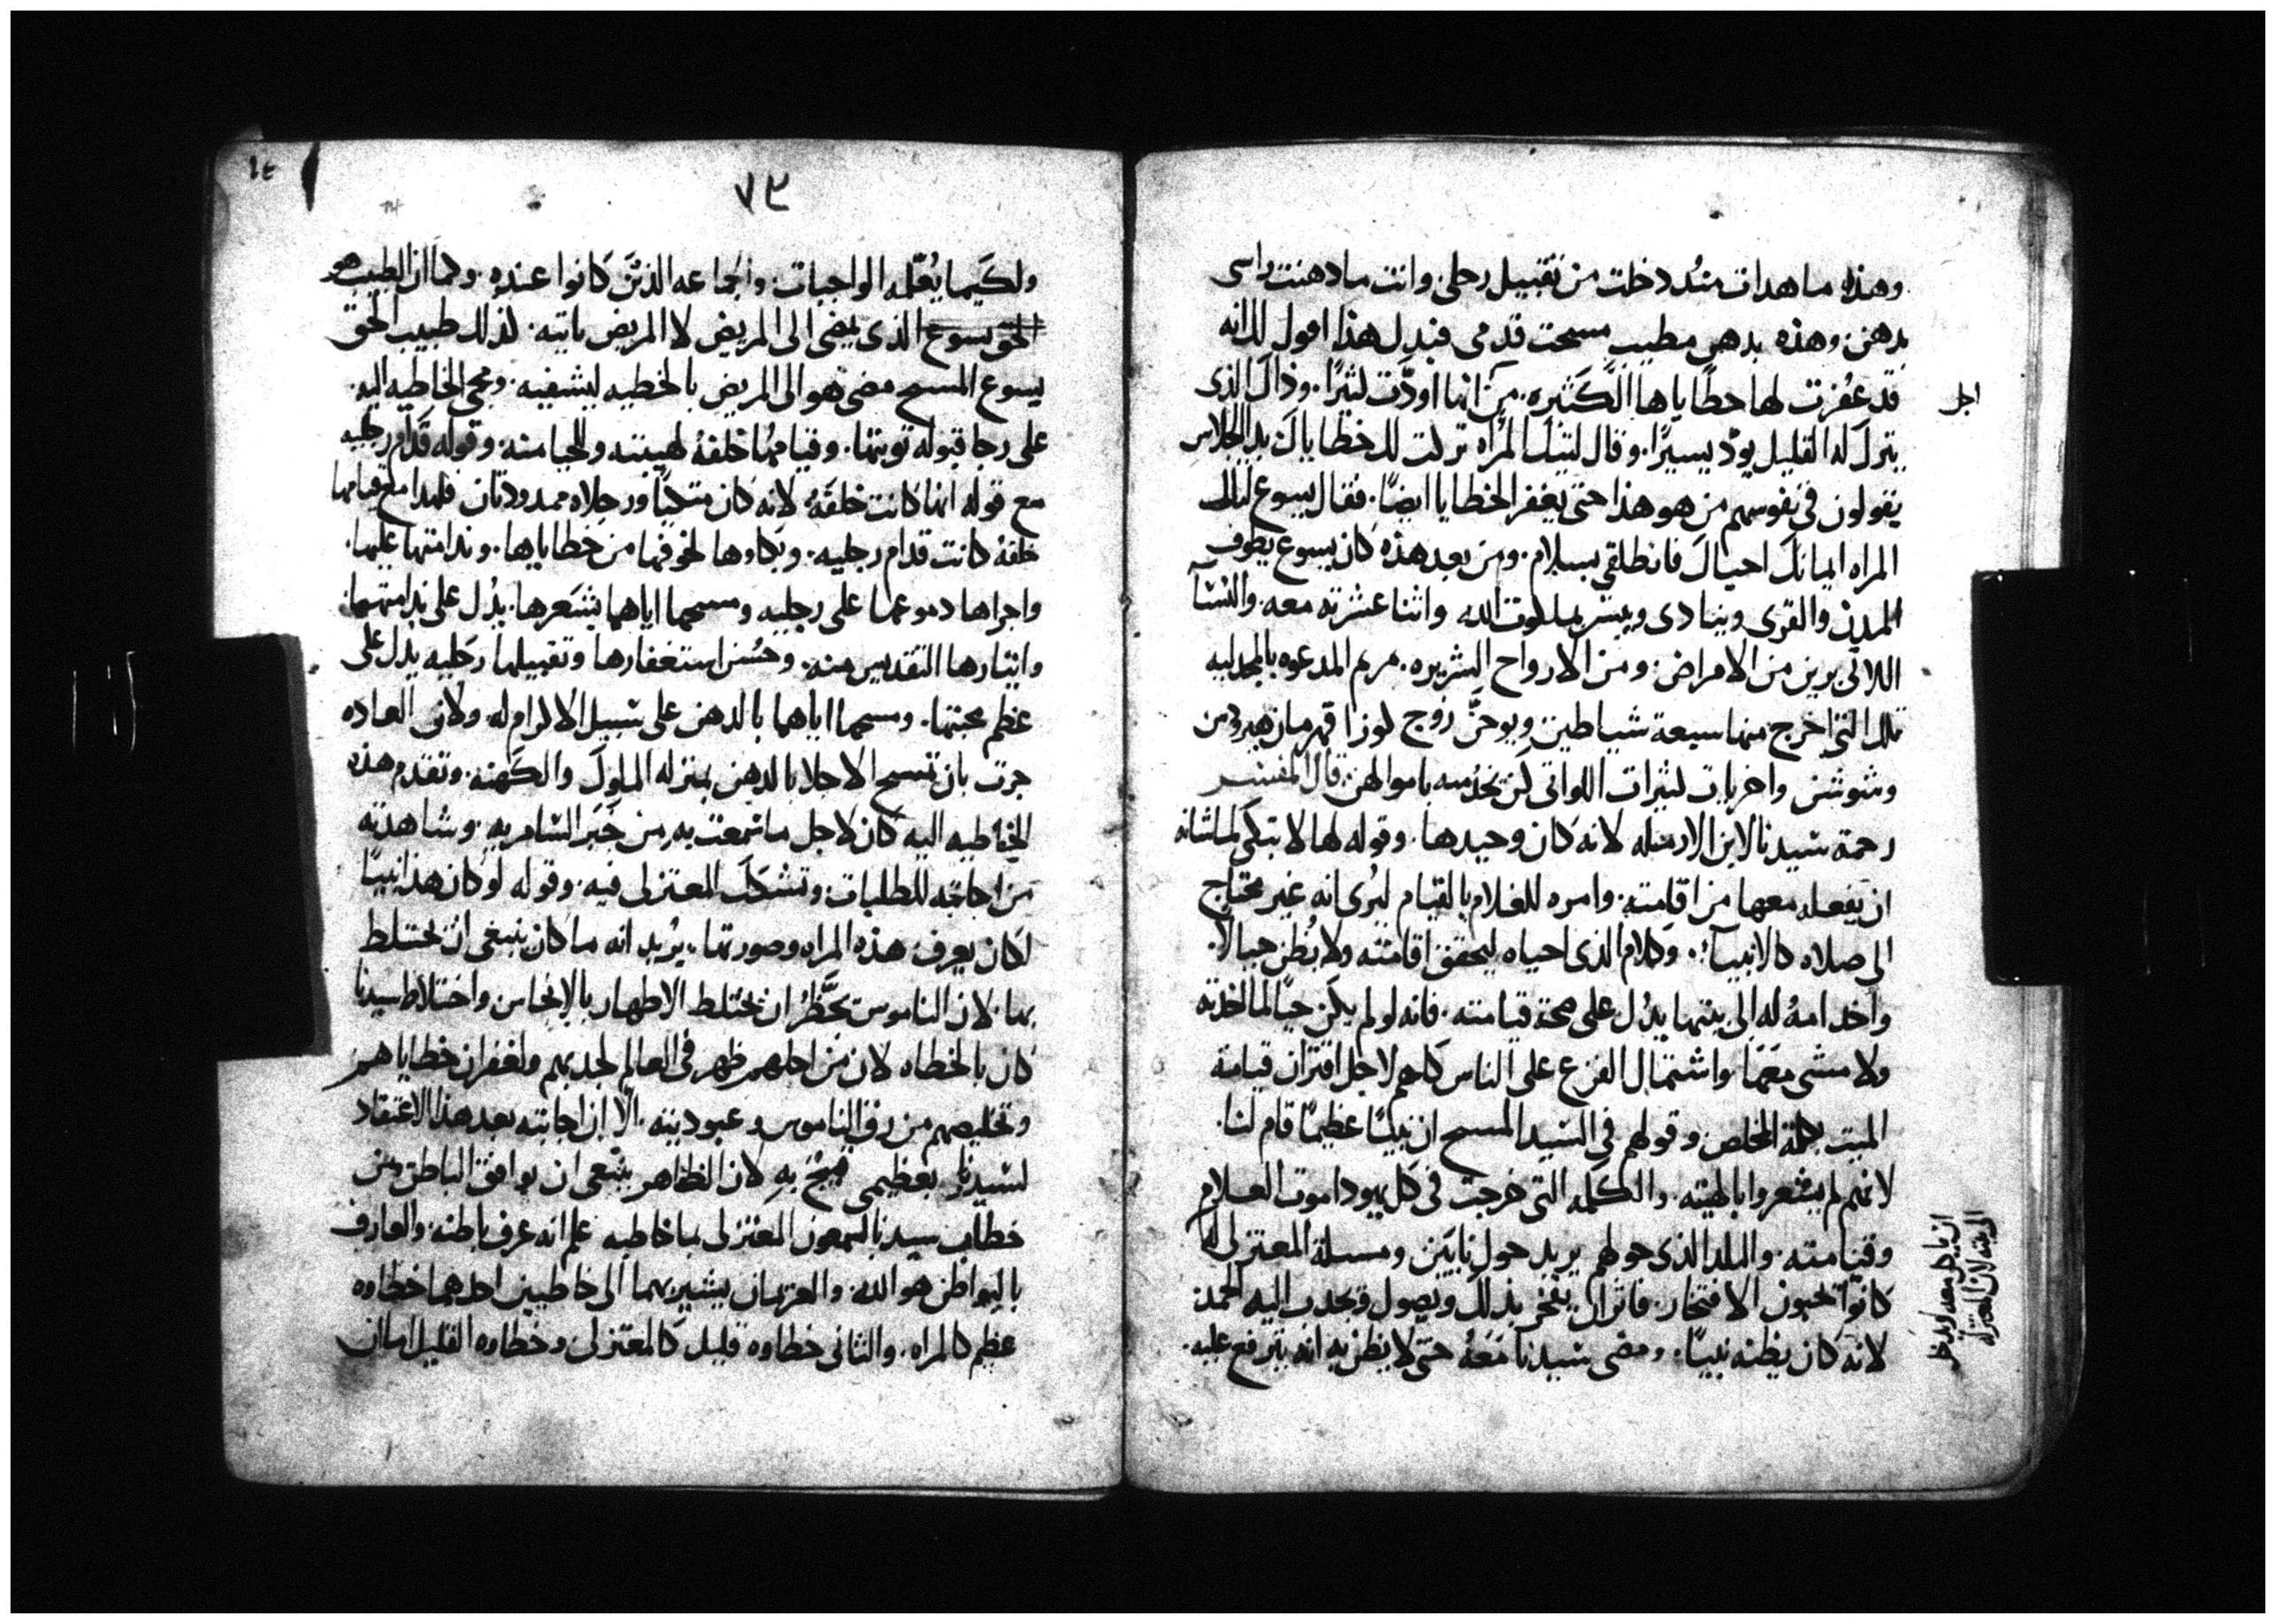 وهذه ما هدات منذ دخلت من تقبيل رجلى وانت ما دهنت راسى
بدهن. وهذه بدهن مطيب مسحت قدمى فبدل هذا اقول لك انه
قد غفرت لها خطاياها الكثيره. من انها اودّت كثيرًا. وذاك الذى
اجل
يترك له القليل يودّ يسيرًا. وقال لتيك المراه تركت لك خطاياك بدا الجلاس
يقولون فى نفوسهم من هو هذا حتى يغفر الخطايا ايضًا. فقال يسوع لتلك
المراه ايمانك احياك فانطلقى بسلام. ومن بعد هذه كان يسوع يطوف
المدن والقرى وينادى ويبشر بملكوت الله واثنا عشرته معه. والنسآ
اللاتى برين من الامراض. ومن الارواح الشريره. مريم المدعوه بالمجدليه
تلك التى اخرج منها سبعة شياطين ويوحنّ زوج لوزا قهرمان هيرودس
وشوشن واخريات كثيرات اللواتى كن تخدمنه باموالهن. قال المفسر
رحمة سيدنا لابن الارمله لانه كان وحيدها. وقوله لها لا تبكى لما شانه
ان يفعله معها من اقامته. وامره للغلام بالقيام ليُرى انه غير محتاج
الى صلاه كالانبيآء. وكلام الذى احياه ليحقق اقامته ولا يُظن خيالًا.
واخد امهُ له الى بيتها يدُل على صحة قيامته. فانه لو لم يكن حيًا لما اخدته
ولا مشى معَهَا واشتمال الفزع على الناس كلهم لاجل اقتران قيامة
الميت بكلمة المخلص وقولهم فى السيد المسيح ان نبيًا عظيمًا قام لنا.
لانهم لم يشعروا بالهيته. والكلمه التى خرجت فى كل يهودا موت الغلام
وقيامته. والبلد الذى حولهم يريد حول نايين ومسلة المعتزلى له
ان ياكل معه ويدخل
الى بيته لان المعتزله
كانوا يحبون الافتخار. فاثر ان يفخر بذلك ويصول ويجدب اليه الحمد
لانه كان يظنه نبيًا. ومضى سيدنا مَعَهُ حتى لا يظن به انه يترفع عليه.
٧٣
ولكَيما يُعلمه الواجبات. والجماعه الذين كانوا عنده. وكما ان الطبيب هو
الحق يسوع الذى يمضى الى المريض لا المريض ياتيه. لذلك طبيب الحق
يسوع المسيح مضى هو الى المريض بالخطيه ليشفيه. ومجى الخاطيه اليه
على رجا قبوله توبتها. وقيامهُا خلفهُ لهيبته والحيا منه. وقوله قدام رجليه
مع قوله انها كانت خلفهُ. لانه كان متكيًا ورجلاه ممدودتان فلهذا مع قيامها
خلفهُ كانت قدام رجليه. وبكاوها لخوفها من خطاياها. وندامتها عليها.
واجراها دموعها على رجليه ومسحها اياهما بشعرها. يدُل على ندامتها.
وايثارها التقديس منه. وحُسن استغفارها وتقبيلها رجليه يدل على
عظم محبتها. ومسحها اياهما بالدهن على سبيل الاكرام له ولان العاده
جرت بان تمسح الاجلا بالدهن بمنزله الملوك والكهنه. وتقدم هذه
الخاطيه اليه كان لاجل ما سمعت به من خبر السامريه. وشاهدته
من اجابته للطلبات. وتشكك المعتزلى فيه. وقوله لو كان هذا نبيًا
لكان يعرف هذه المراه وصورتها. يُريد انه ما كان ينبغى ان تختلط
بها. لان الناموس يحَظُر ان تختلط الاطهار بالانجاس واختلاط سيدنا
كان بالخطاه لان من اجلهم ظهر فى العالم لجذبهم ولغفران خطاياهم
وتخليصهم من رق الناموس وعبوديته. الّا ان اجابته بعد هذا الاعتقاد
لسيدنا بعظيمى قبيح بهِ لان الظاهر ينبغى ان يوافق الباطن ومن
خطاب سيدنا لسمعون المعتزلى بما خاطبه علم انه عرف باطنه والعارف
بالبواطن هو الله. والغريمان يشير بهما الى خاطيين احدهما خطاوه
عظيم كالمراه. والثانى خطاوه قليل كالمعتزلى وخطاوه القليل اما ان